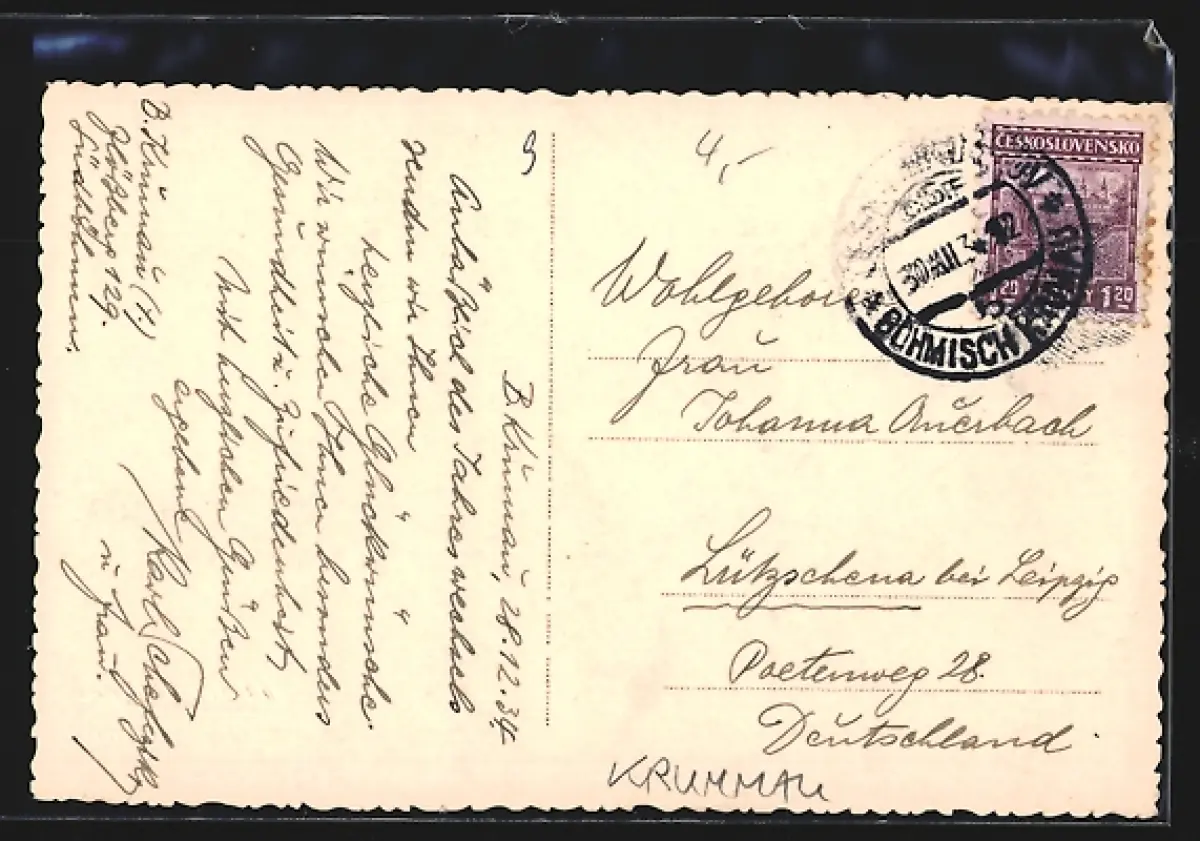 B. Krumau, 28.12.34
Anläßlich des Jahreswechsels
senden wir Ihnen
herzliche Glückwünsche.
Wir wünschen Ihnen besonders
Gesundheit u. Zufriedenheit,
Mit herzlichen Grüßen
ergebenst
Karl
u. Frau.
B. Krumau (7)
Flößberg 129.
Südböhmen.
9
4,-
ČESKOSLOVENSKO
1 20
BÖHMISCH KRUMAU
30 XII 34 12
Wohlgeboren
Frau
Johanna Auerbach
Lützschena bei Leipzig
Poetenweg 28.
Deutschland
KRUMMAU